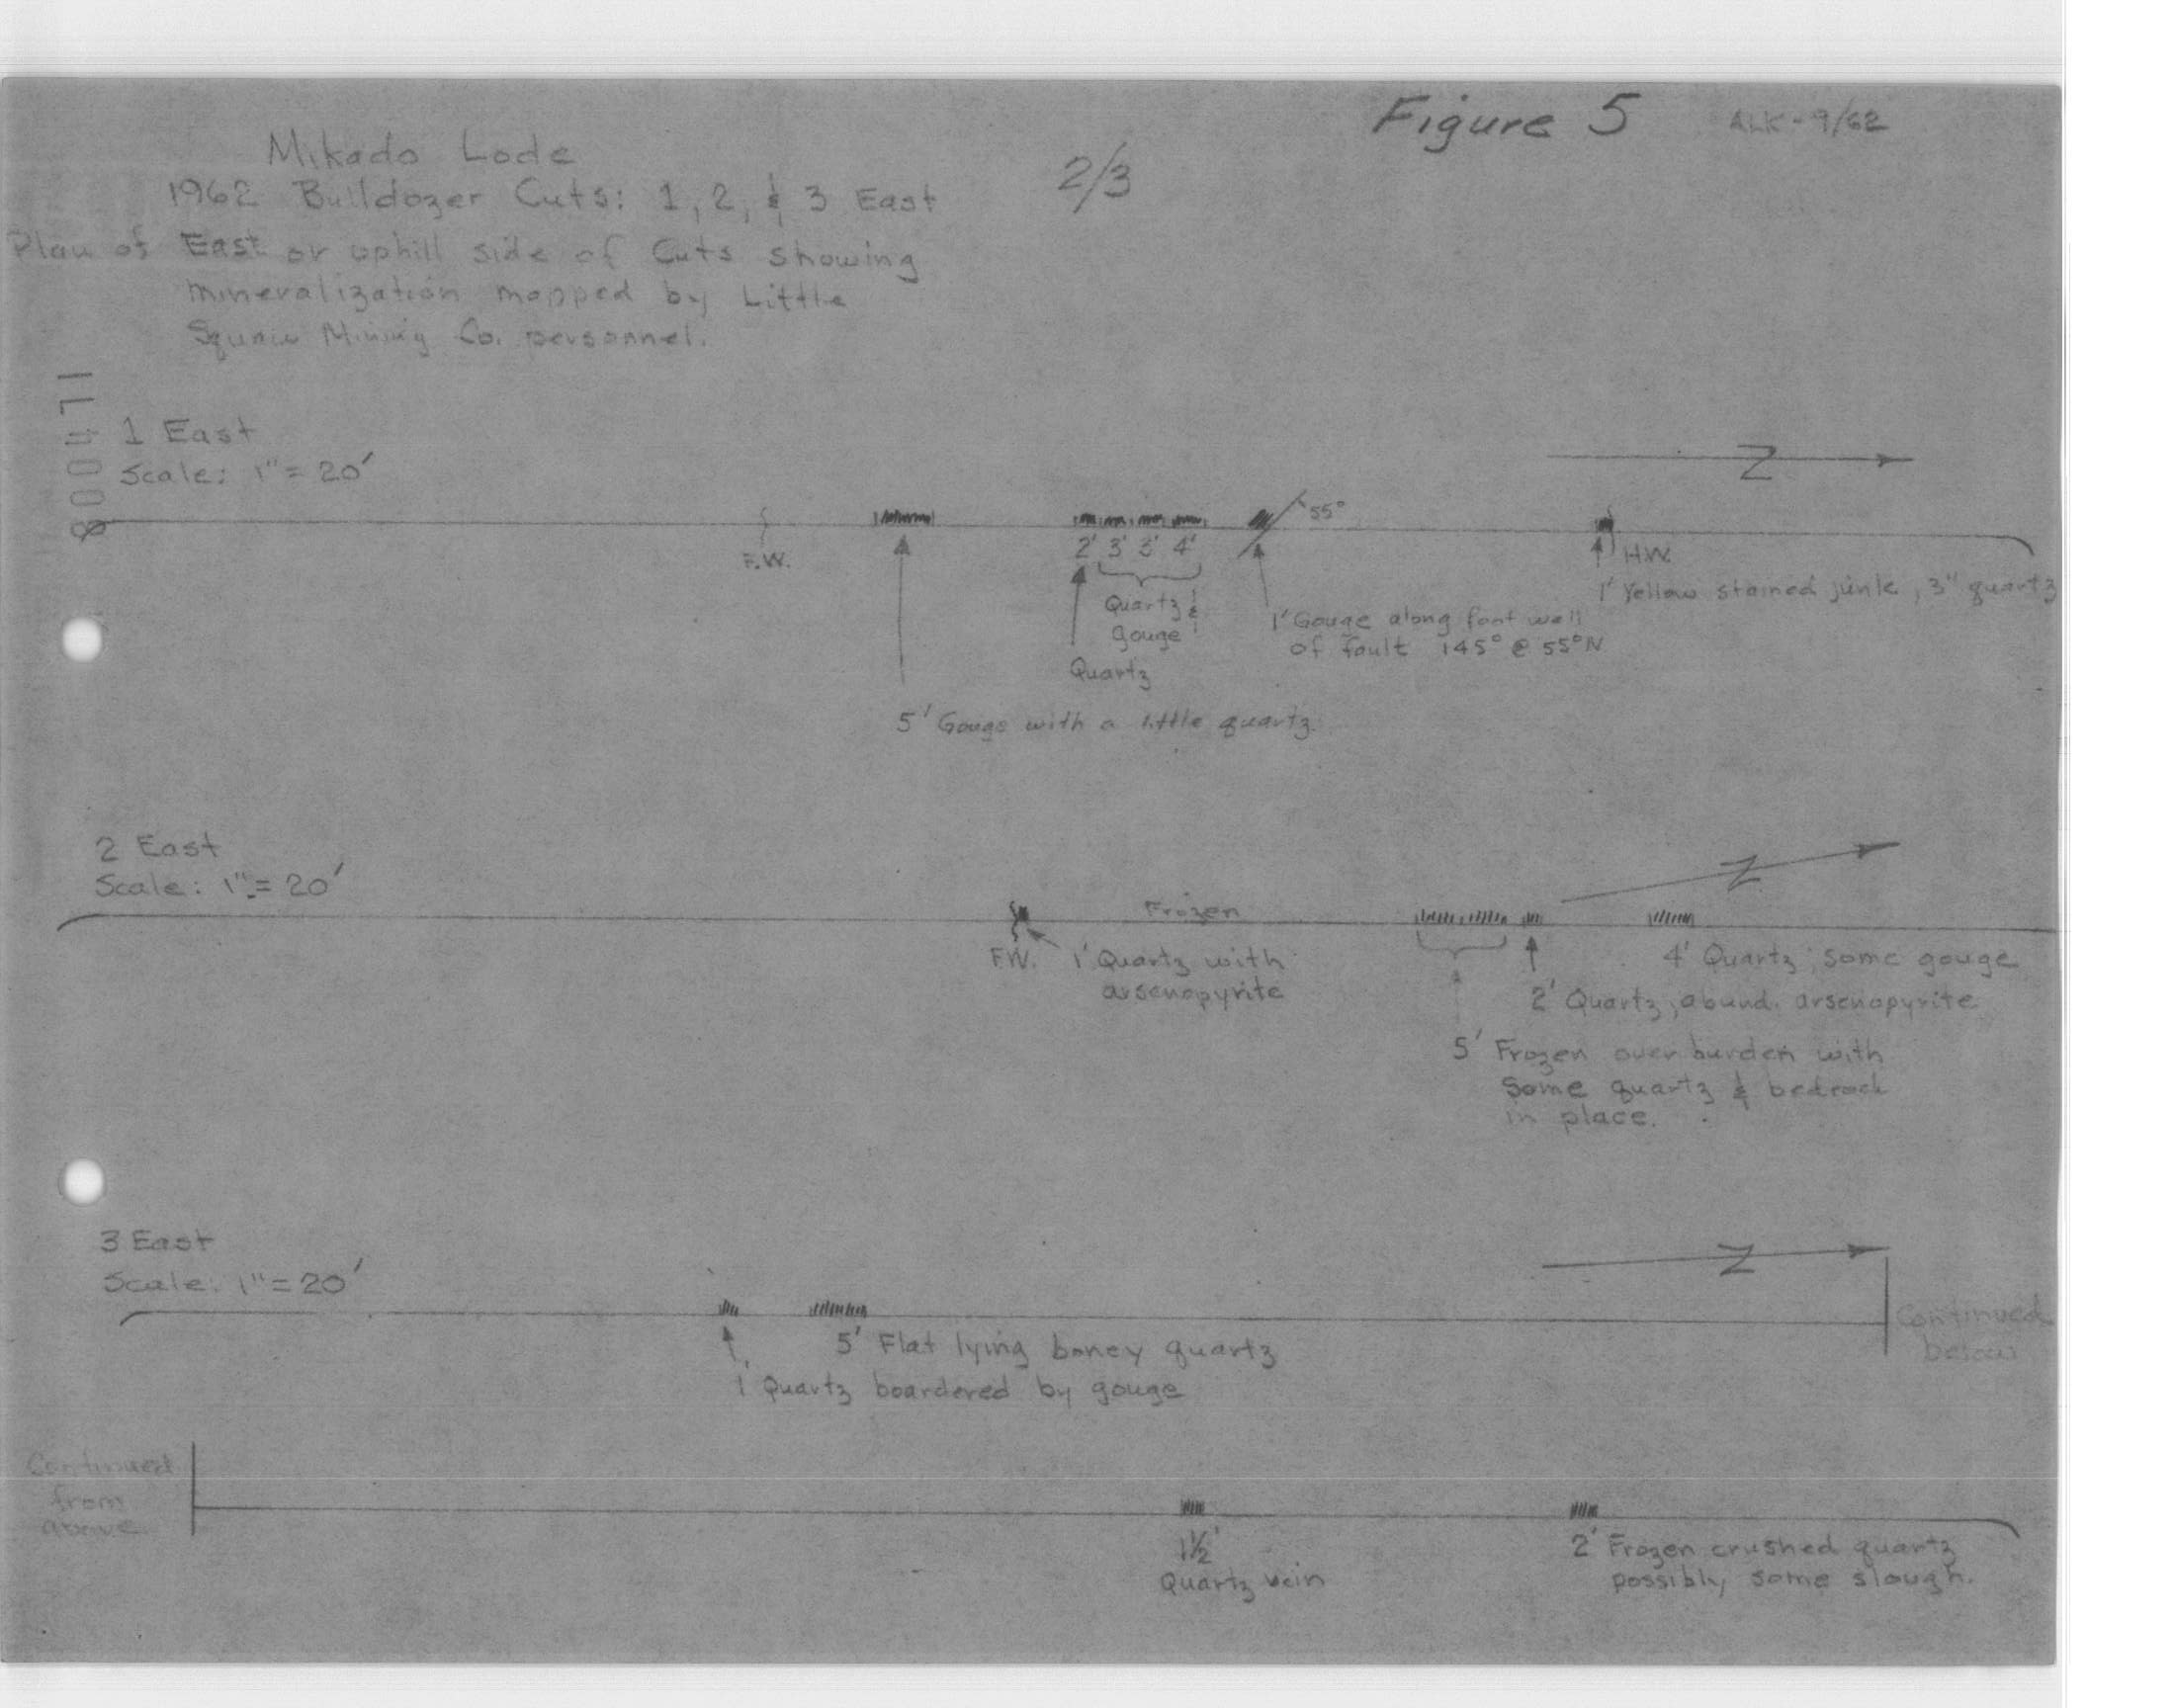 Figure 5
ALK-9/62
Mikado Lode
2/3
1962 Bulldozer Cuts: 1, 2, & 3 East
Plan of East or uphill side of Cuts showing
mineralization mapped by Little
Squaw Mining Co. personnel.
1 East
Scale: 1" = 20'
Z
55°
F.W.
2' 3' 3' 4'
H.W.
1' Yellow stained junk, 3" quartz
Quartz &
gouge
1' Gouge along foot wall
of fault 145° @ 55°N
Quartz
5' Gouge with a little quartz.
2 East
Scale: 1" = 20'
Z
Frozen
F.W.
1' Quartz with
arsenopyrite
4' Quartz, some gouge
2' Quartz, abund. arsenopyrite
5' Frozen overburden with
some quartz & bedrock
in place.
3 East
Scale: 1" = 20'
Z
Continued
below
5' Flat lying boney quartz
1' Quartz boardered by gouge
Continued
from
above
1½'
Quartz vein
2' Frozen crushed quartz
possibly some slough.